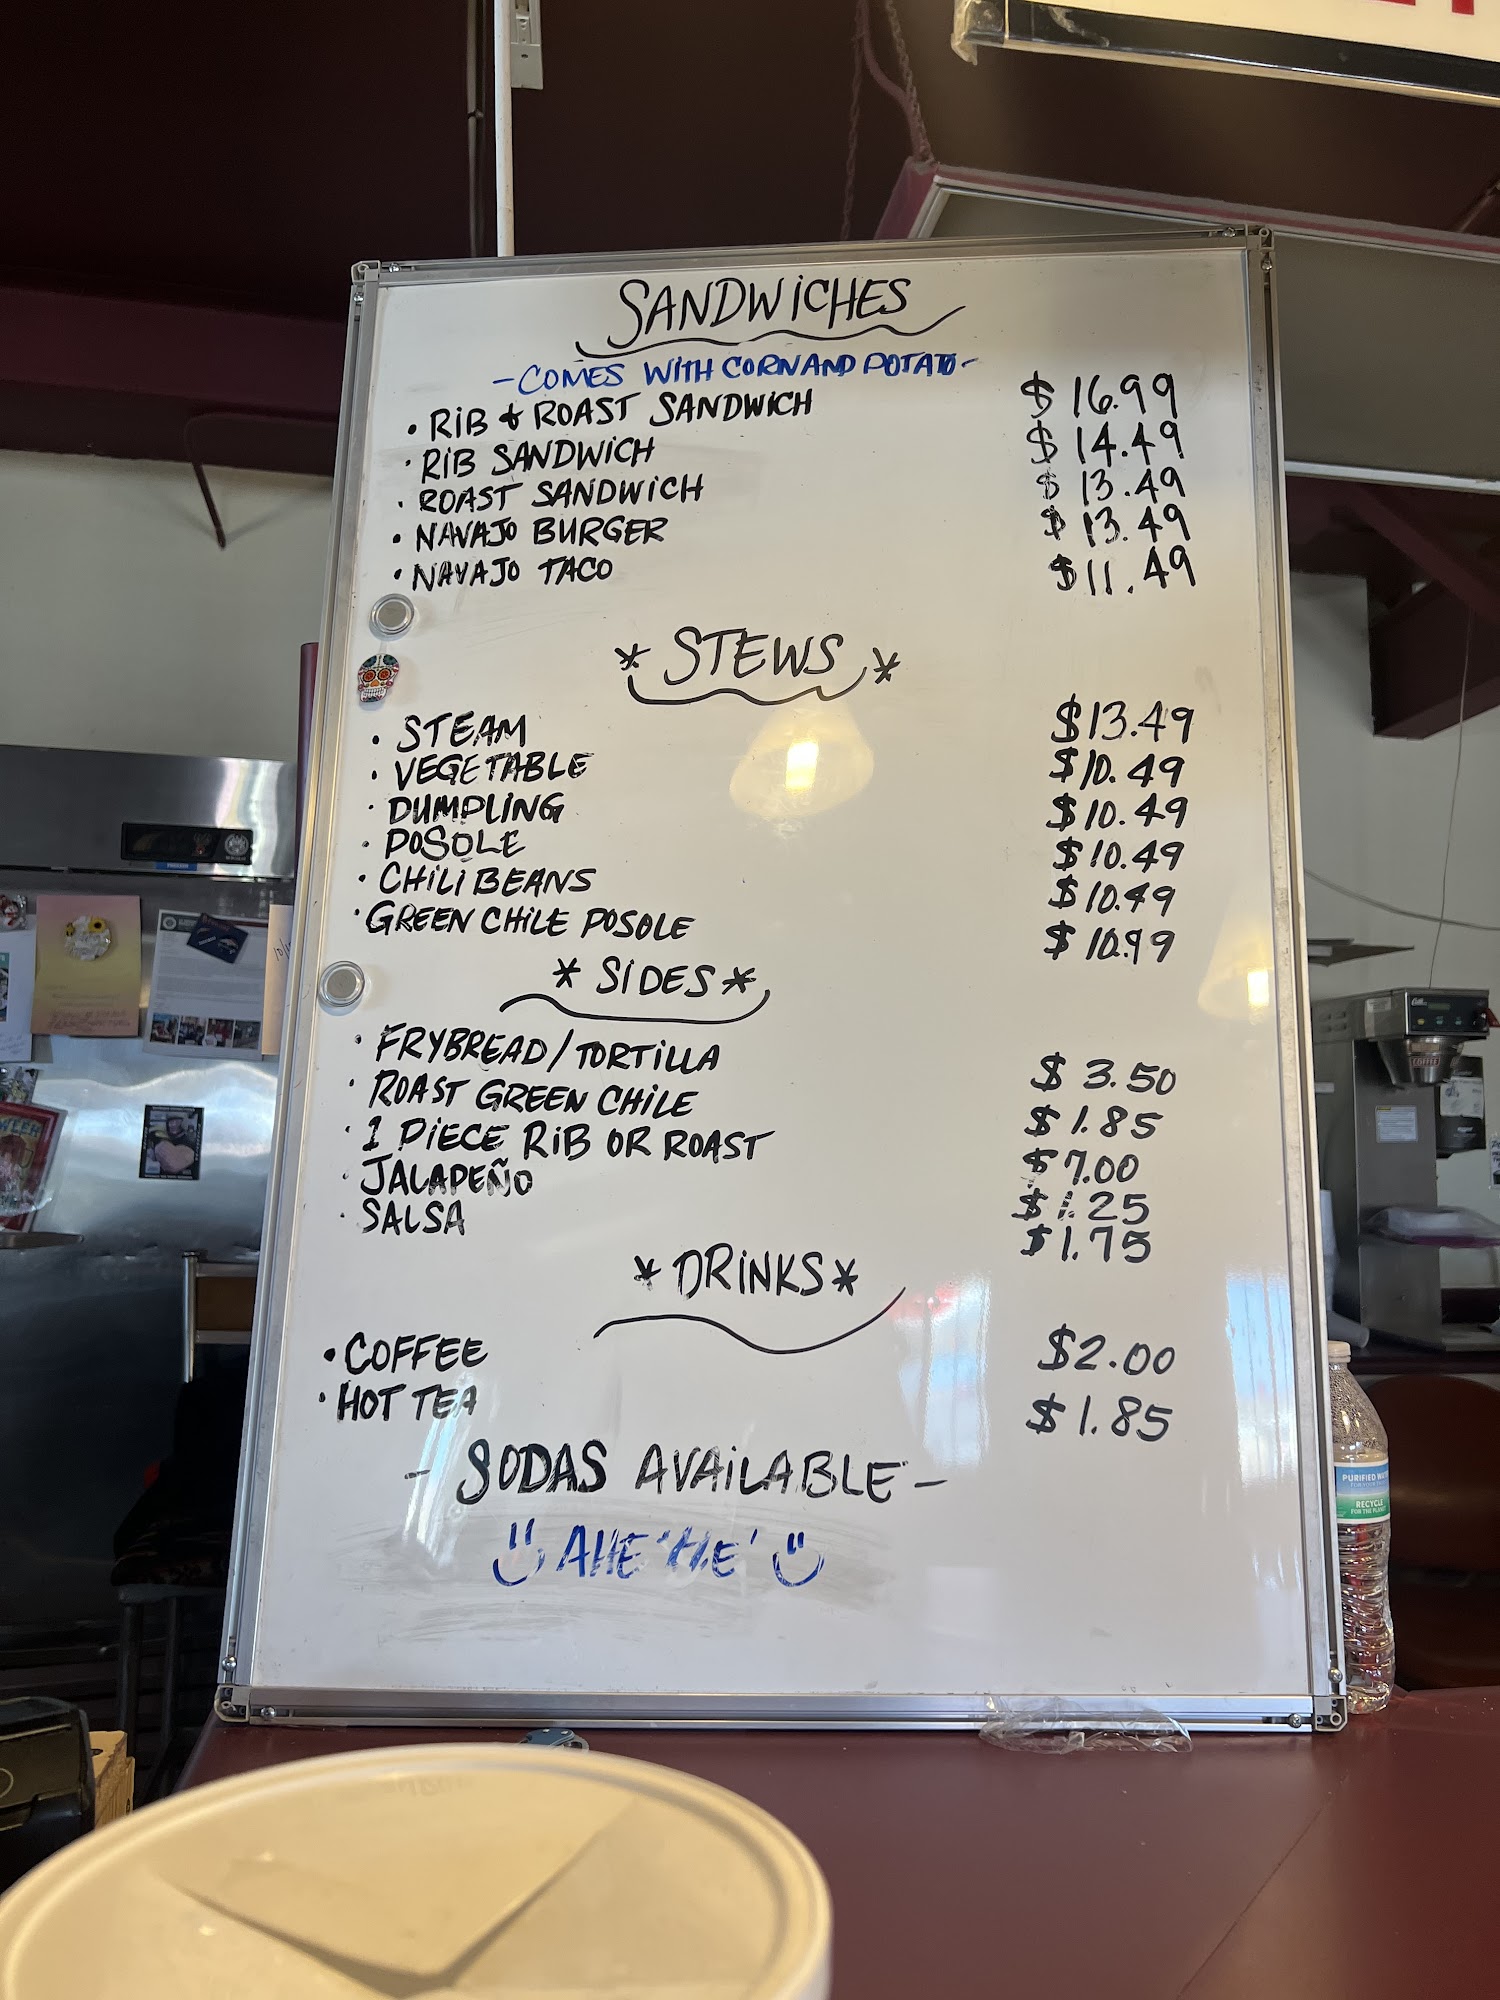 SANDWiCHES
- COMES WiTH CORN AND POTATO -
• RiB & ROAST SANDWiCH $ 16.99
• RiB SANDWiCH $ 14.49
• ROAST SANDWiCH $ 13.49
• NAVAJO BURGER $ 13.49
• NAVAJO TACO $11.49
* STEWS *
• STEAM $13.49
• VEGETABLE $10.49
• DUMPLiNG $10.49
• POSOLE $10.49
• CHiLi BEANS $10.49
• GREEN CHiLE POSOLE
* SiDES *
• FRYBREAD/TORTiLLA $ 3.50
• ROAST GREEN CHiLE $ 1.85
• 1 PiECE RiB OR ROAST $ 7.00
• JALAPEÑO $ 1.25
• SALSA $ 1.75
* DRiNKS *
• COFFEE $2.00
• HOT TEA $1.85
- SODAS AVAiLABLE -
AHE'HE'
PURIFIED
RECYCLE
FOR THE PLANET
COFFEE